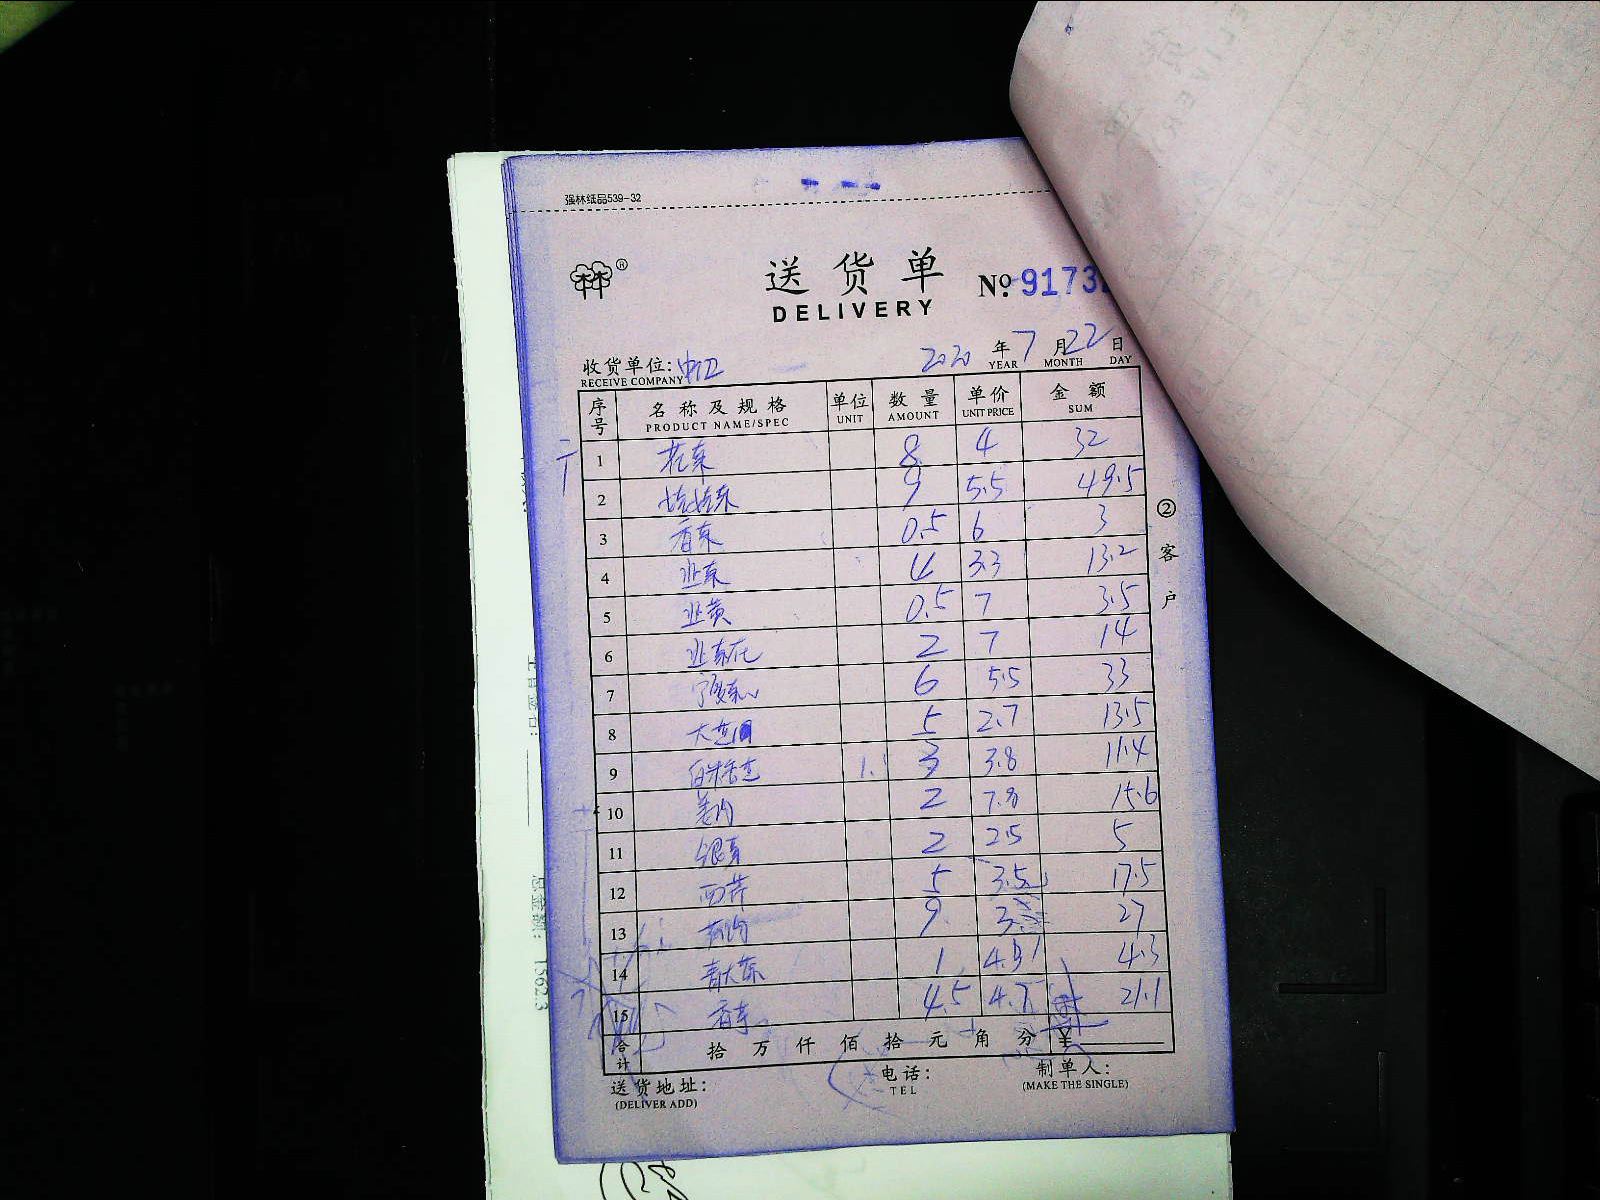 强林纸品539-32
送货单
DELIVERY
№ 9173
收货单位:
RECEIVE COMPANY
2020 年 7 月 22 日
YEAR MONTH DAY
序号 名称及规格 单位 数量 单价 金额
PRODUCT NAME/SPEC UNIT AMOUNT UNIT PRICE SUM
1 花菜 8 4 32
2 9 5.5 49.5
3 香菜 0.5 6 3
4 韭菜 4 3.3 13.2
5 韭黄 0.5 7 3.5
6 韭菜花 2 7 14
7 6 5.5 33
8 5 2.7 13.5
9 3 3.8 11.4
10 姜肉 2 7.8 15.6
11 银芽 2 2.5 5
12 西芹 5 3.5 17.5
13 9 3 27
14 1 4.3 4.3
15 4.5 4.7 21.1
合计 拾 万 仟 佰 拾 元 角 分 ¥
送货地址: 电话: 制单人:
(DELIVER ADD) TEL (MAKE THE SINGLE)
② 客户
总金额: 1562.3